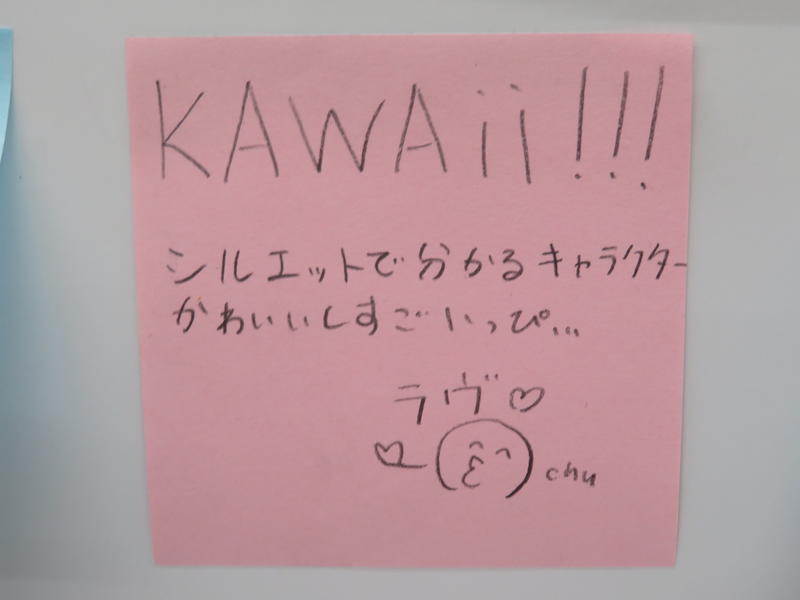 KAWAii!!!
シルエットで分かるキャラクター
かわいいしすごいっぴ...
ラヴ♡
chu